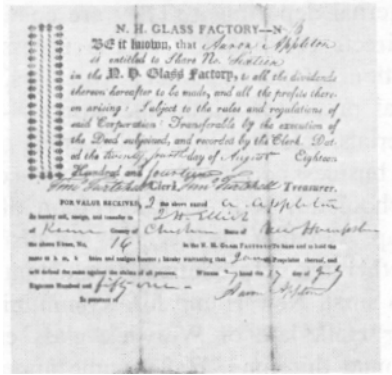 N. H. GLASS FACTORY—N
BE it known, that Aaron Appleton
is entitled to Share No. Sixteen
in the N. H. Glass Factory, to all the dividends
thereon hereafter to be made, and all the profits there-
on arising: Subject to the rules and regulations of
said Corporation: Transferable by the execution of
the Deed subjoined, and recorded by the Clerk. Dat-
ed the twenty day of August Eighteen
Hundred and fourteen
Clerk, Treasurer.
FOR VALUE RECEIVED, I the above named A Appleton
do hereby sell, assign, and transfer to J. H. Elliot
of Keene County of Cheshire State of New Hampshire
the above Share, No. 16 in the N. H. GLASS FACTORY: To have and to hold the
same to h heirs and assigns forever; hereby warranting that I am Proprietor thereof, and
will defend the same against the claims of all persons. Witness my hand the 17 day of July
Eighteen Hundred and fifty one Aaron Appleton
In presence of